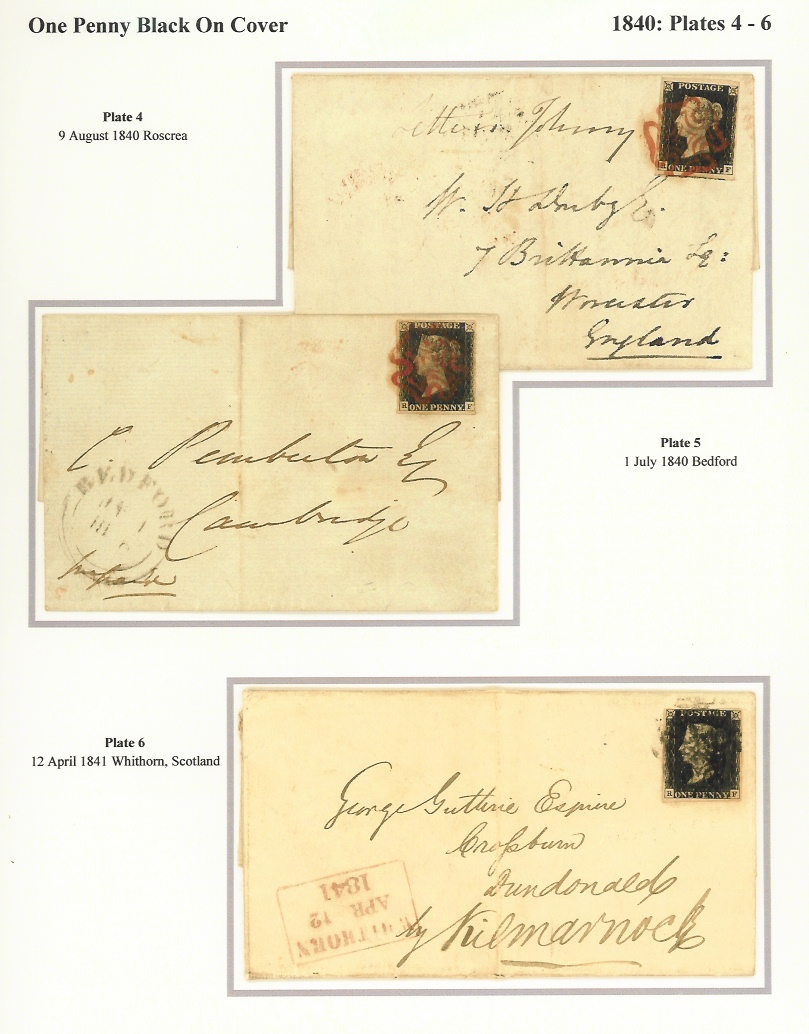 One Penny Black On Cover
1840: Plates 4 - 6
Plate 4
9 August 1840 Roscrea
POSTAGE
F
ONE PENNY
Johnny
W. H Darby Esq.
7 Brittannia Sq:
Worcester
England
Plate 5
1 July 1840 Bedford
POSTAGE
ONE PENNY
F
C. Pemberton Esq
Cambridge
BEDFORD
Plate 6
12 April 1841 Whithorn, Scotland
POSTAGE
ONE PENNY
F
George Guthrie Esquire
Crossburn
Dundonald
by Kilmarnock
WHITHORN
APR 12
1841